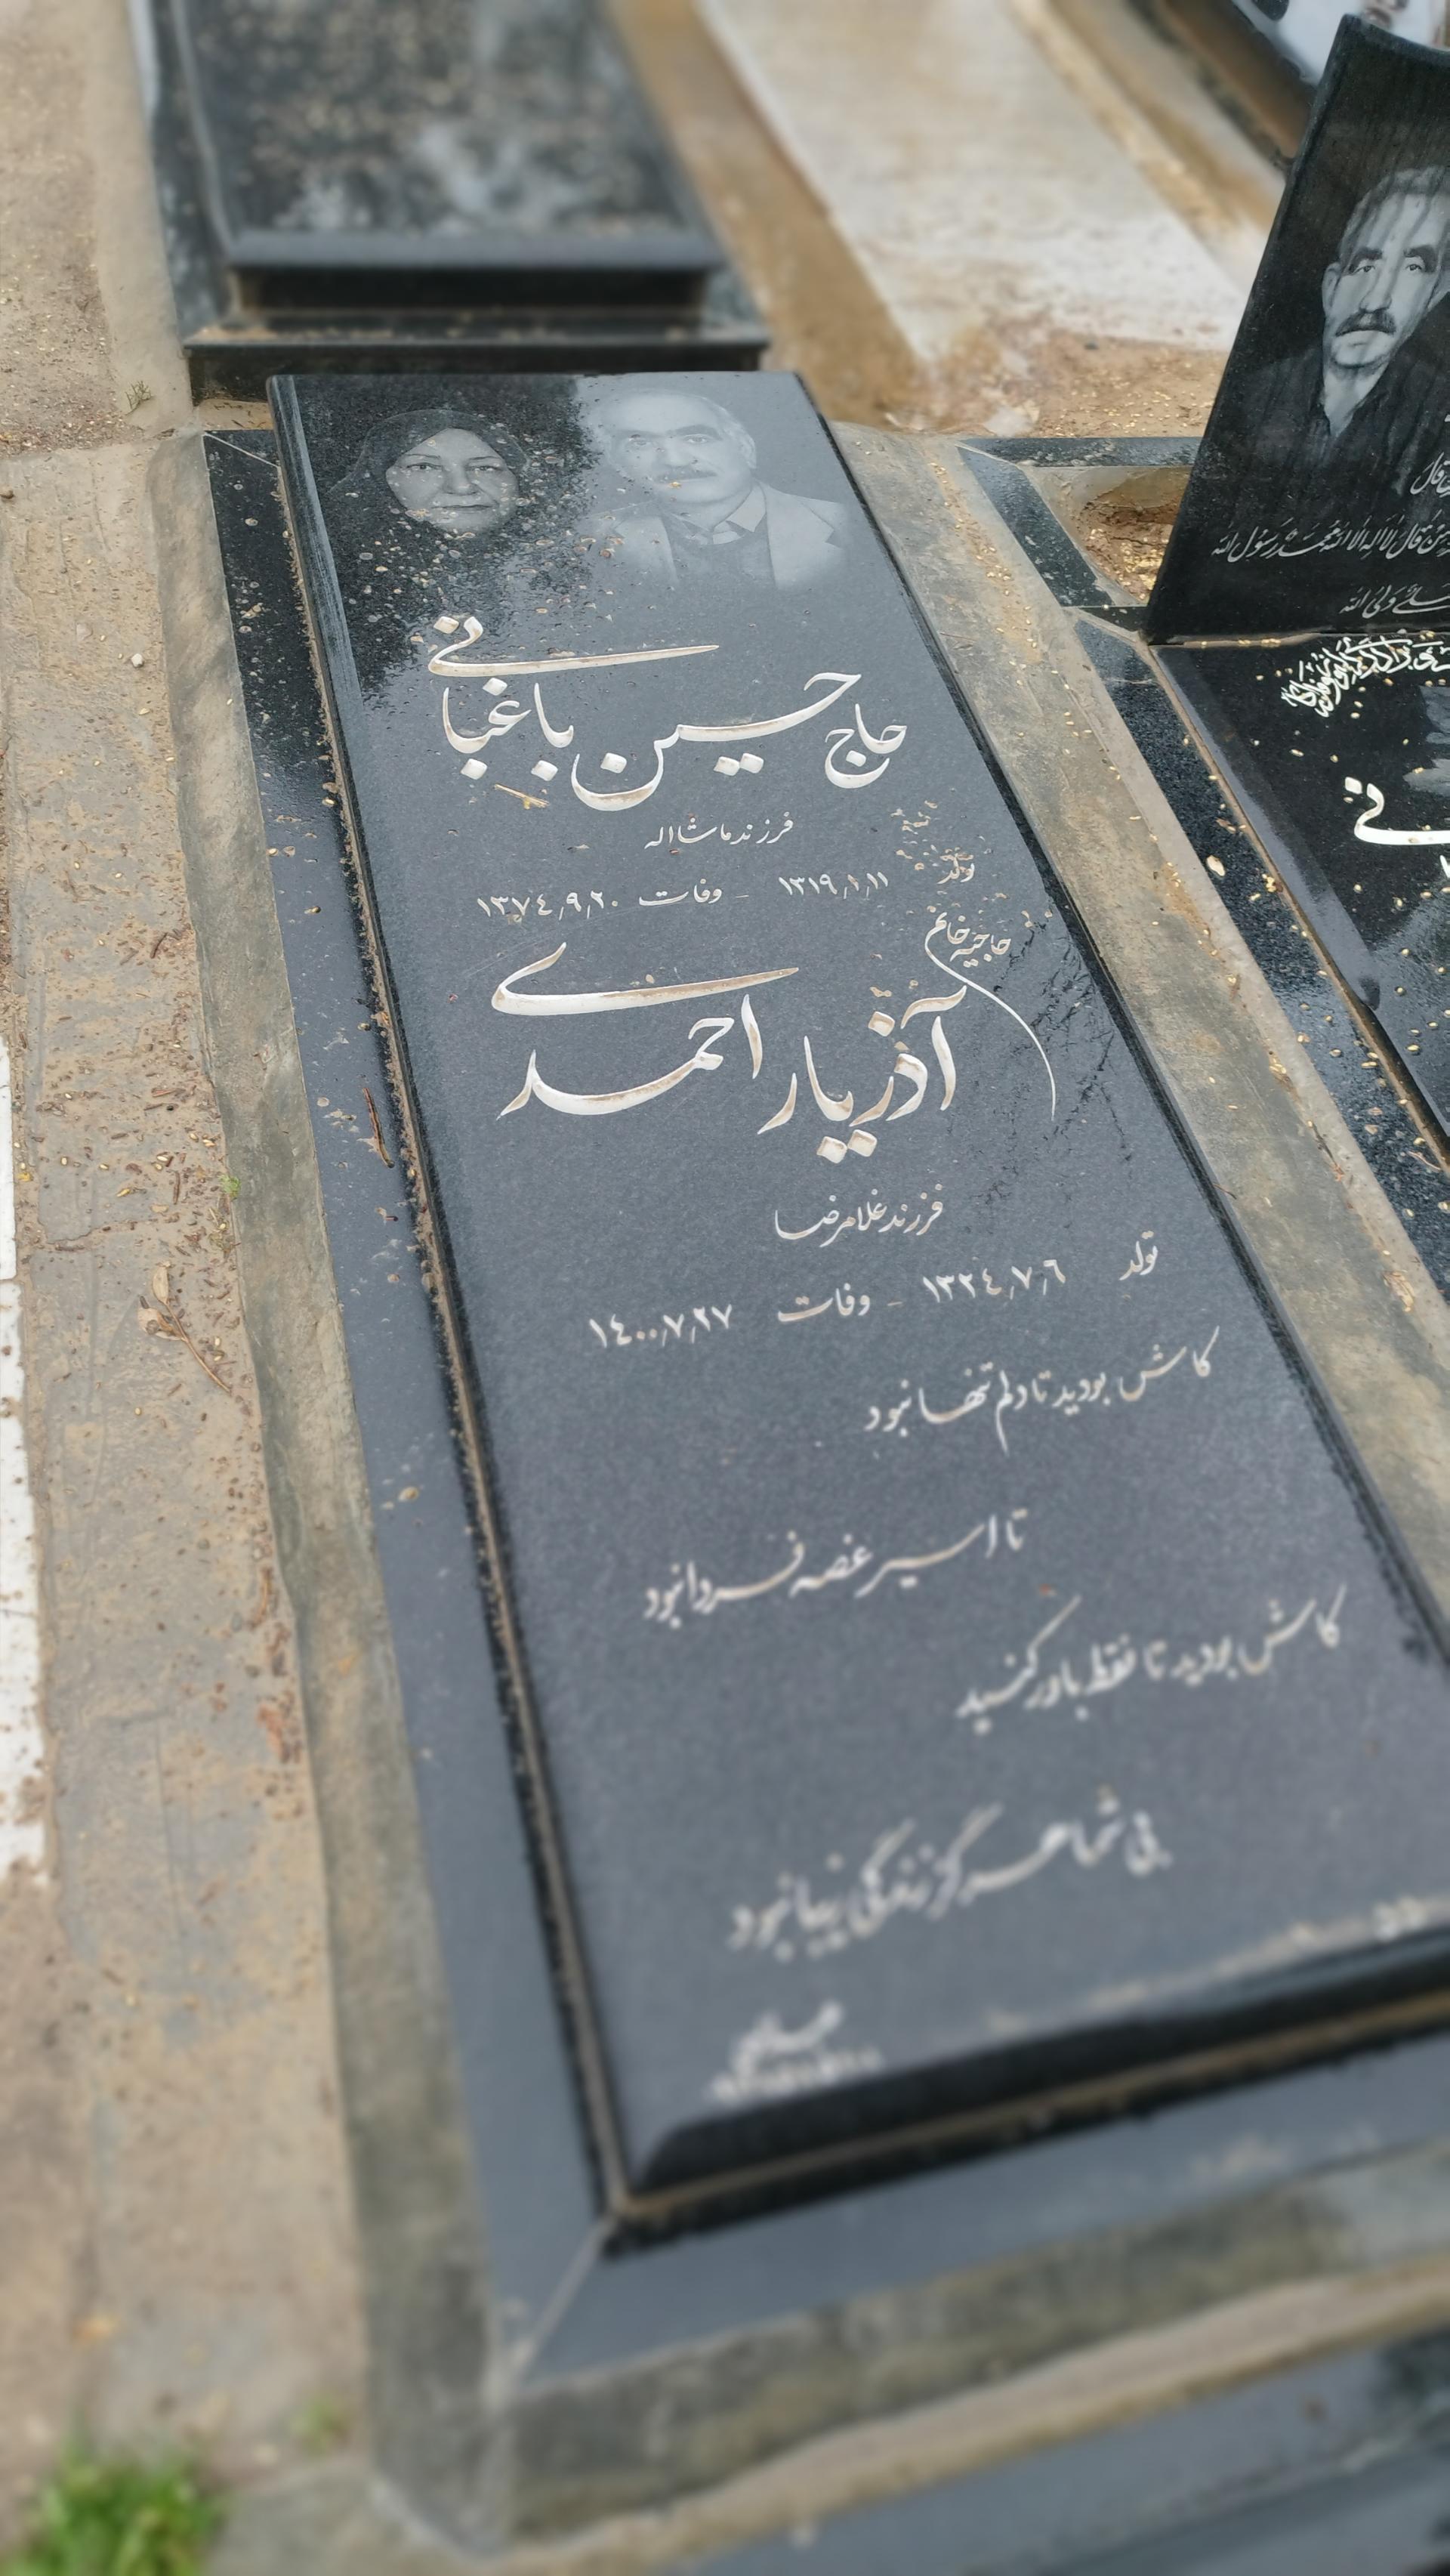 حاج حسین باغبانی
فرزند ماشااله
تولد ۱۳۱۹٫۱٫۱۱ - وفات ۱۳۷٤٫۹٫۲۰
حاجیه خانم
آذر یار احمدی
فرزند غلامرضا
تولد ۱۳۲٤٫۷٫٦ - وفات ۱٤۰۰٫۷٫۲۷
کاش بودید تا دلم تنها نبود
تا اسیر غصه فردا نبود
کاش بودید تا فقط باور کنید
بی شما هرگز زندگی زیبا نبود
قال
من قال لا اله الا الله محمد رسول الله
ولی الله
نی